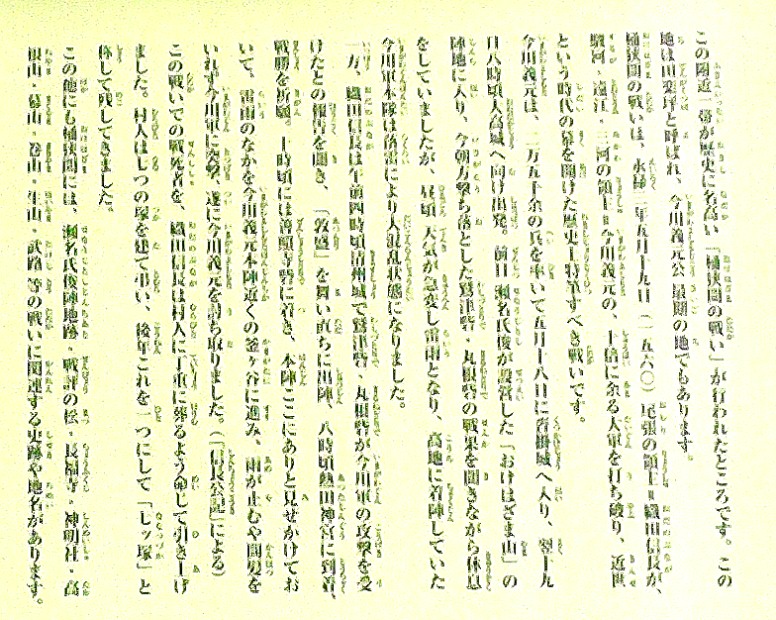 この附近一帯が歴史に名高い「桶狭間の戦い」が行われたところです。この
地は田楽坪と呼ばれ、今川義元公最期の地でもあります。
桶狭間の戦いは、永禄三年五月十九日(一五六〇)尾張の領主＝織田信長が、
駿河・遠江・三河の領主＝今川義元の、十倍に余る大軍を打ち破り、近世
という時代の幕を開けた歴史上特筆すべき戦いです。
今川義元は、二万五千余の兵を率いて五月十八日に沓掛城へ入り、翌十九
日八時頃大高城へ向け出発。前日瀬名氏俊が設営した「おけはざま山」の
陣地に入り、今朝方撃ち落とした鷲津砦・丸根砦の戦果を聞きながら休息
をしていましたが、昼頃、天気が急変し雷雨となり、高地に着陣していた
今川軍本隊は落雷により大混乱状態になりました。
一方、織田信長は午前四時頃清州城で鷲津砦・丸根砦が今川軍の攻撃を受
けたとの報告を聞き、「敦盛」を舞い直ちに出陣、八時頃熱田神宮に到着、
戦勝を祈願。十時頃には善照寺砦に着き、本陣ここにありと見せかけてお
いて、雷雨のなかを今川義元本陣近くの釜ヶ谷に進み、雨が止むや間髪を
いれず今川軍に突撃、遂に今川義元を討ち取りました。(「信長公記」による)
この戦いでの戦死者を、織田信長は村人に丁重に葬るよう命じて引き上げ
ました。村人は七つの塚を建て弔い、後年これを一つにして「七ッ塚」と
称して残してきました。
この他にも桶狭間には、瀬名氏俊陣地跡・戦評の松・長福寺・神明社・高
根山・幕山・巻山・生山・武路 等の戦いに関連する史跡や地名があります。